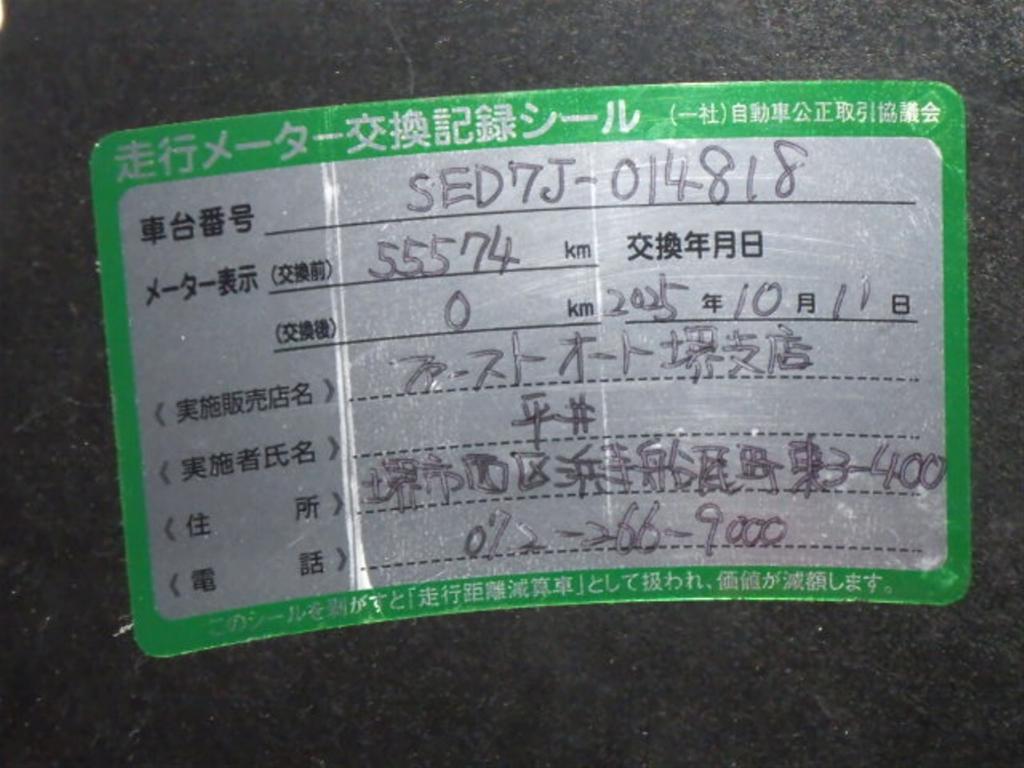 走行メーター交換記録シール (一社)自動車公正取引協議会
車台番号 SED7J-014818
メーター表示 (交換前) 55574 km 交換年月日
(交換後) 0 km 2025 年 10 月 11 日
《実施販売店名》 ファーストオート堺支店
《実施者氏名》 平井
《住 所》 堺市西区浜寺船尾町東3-400
《電 話》 072-266-9000
このシールを剥がすと「走行距離減算車」として扱われ、価値が減額します。